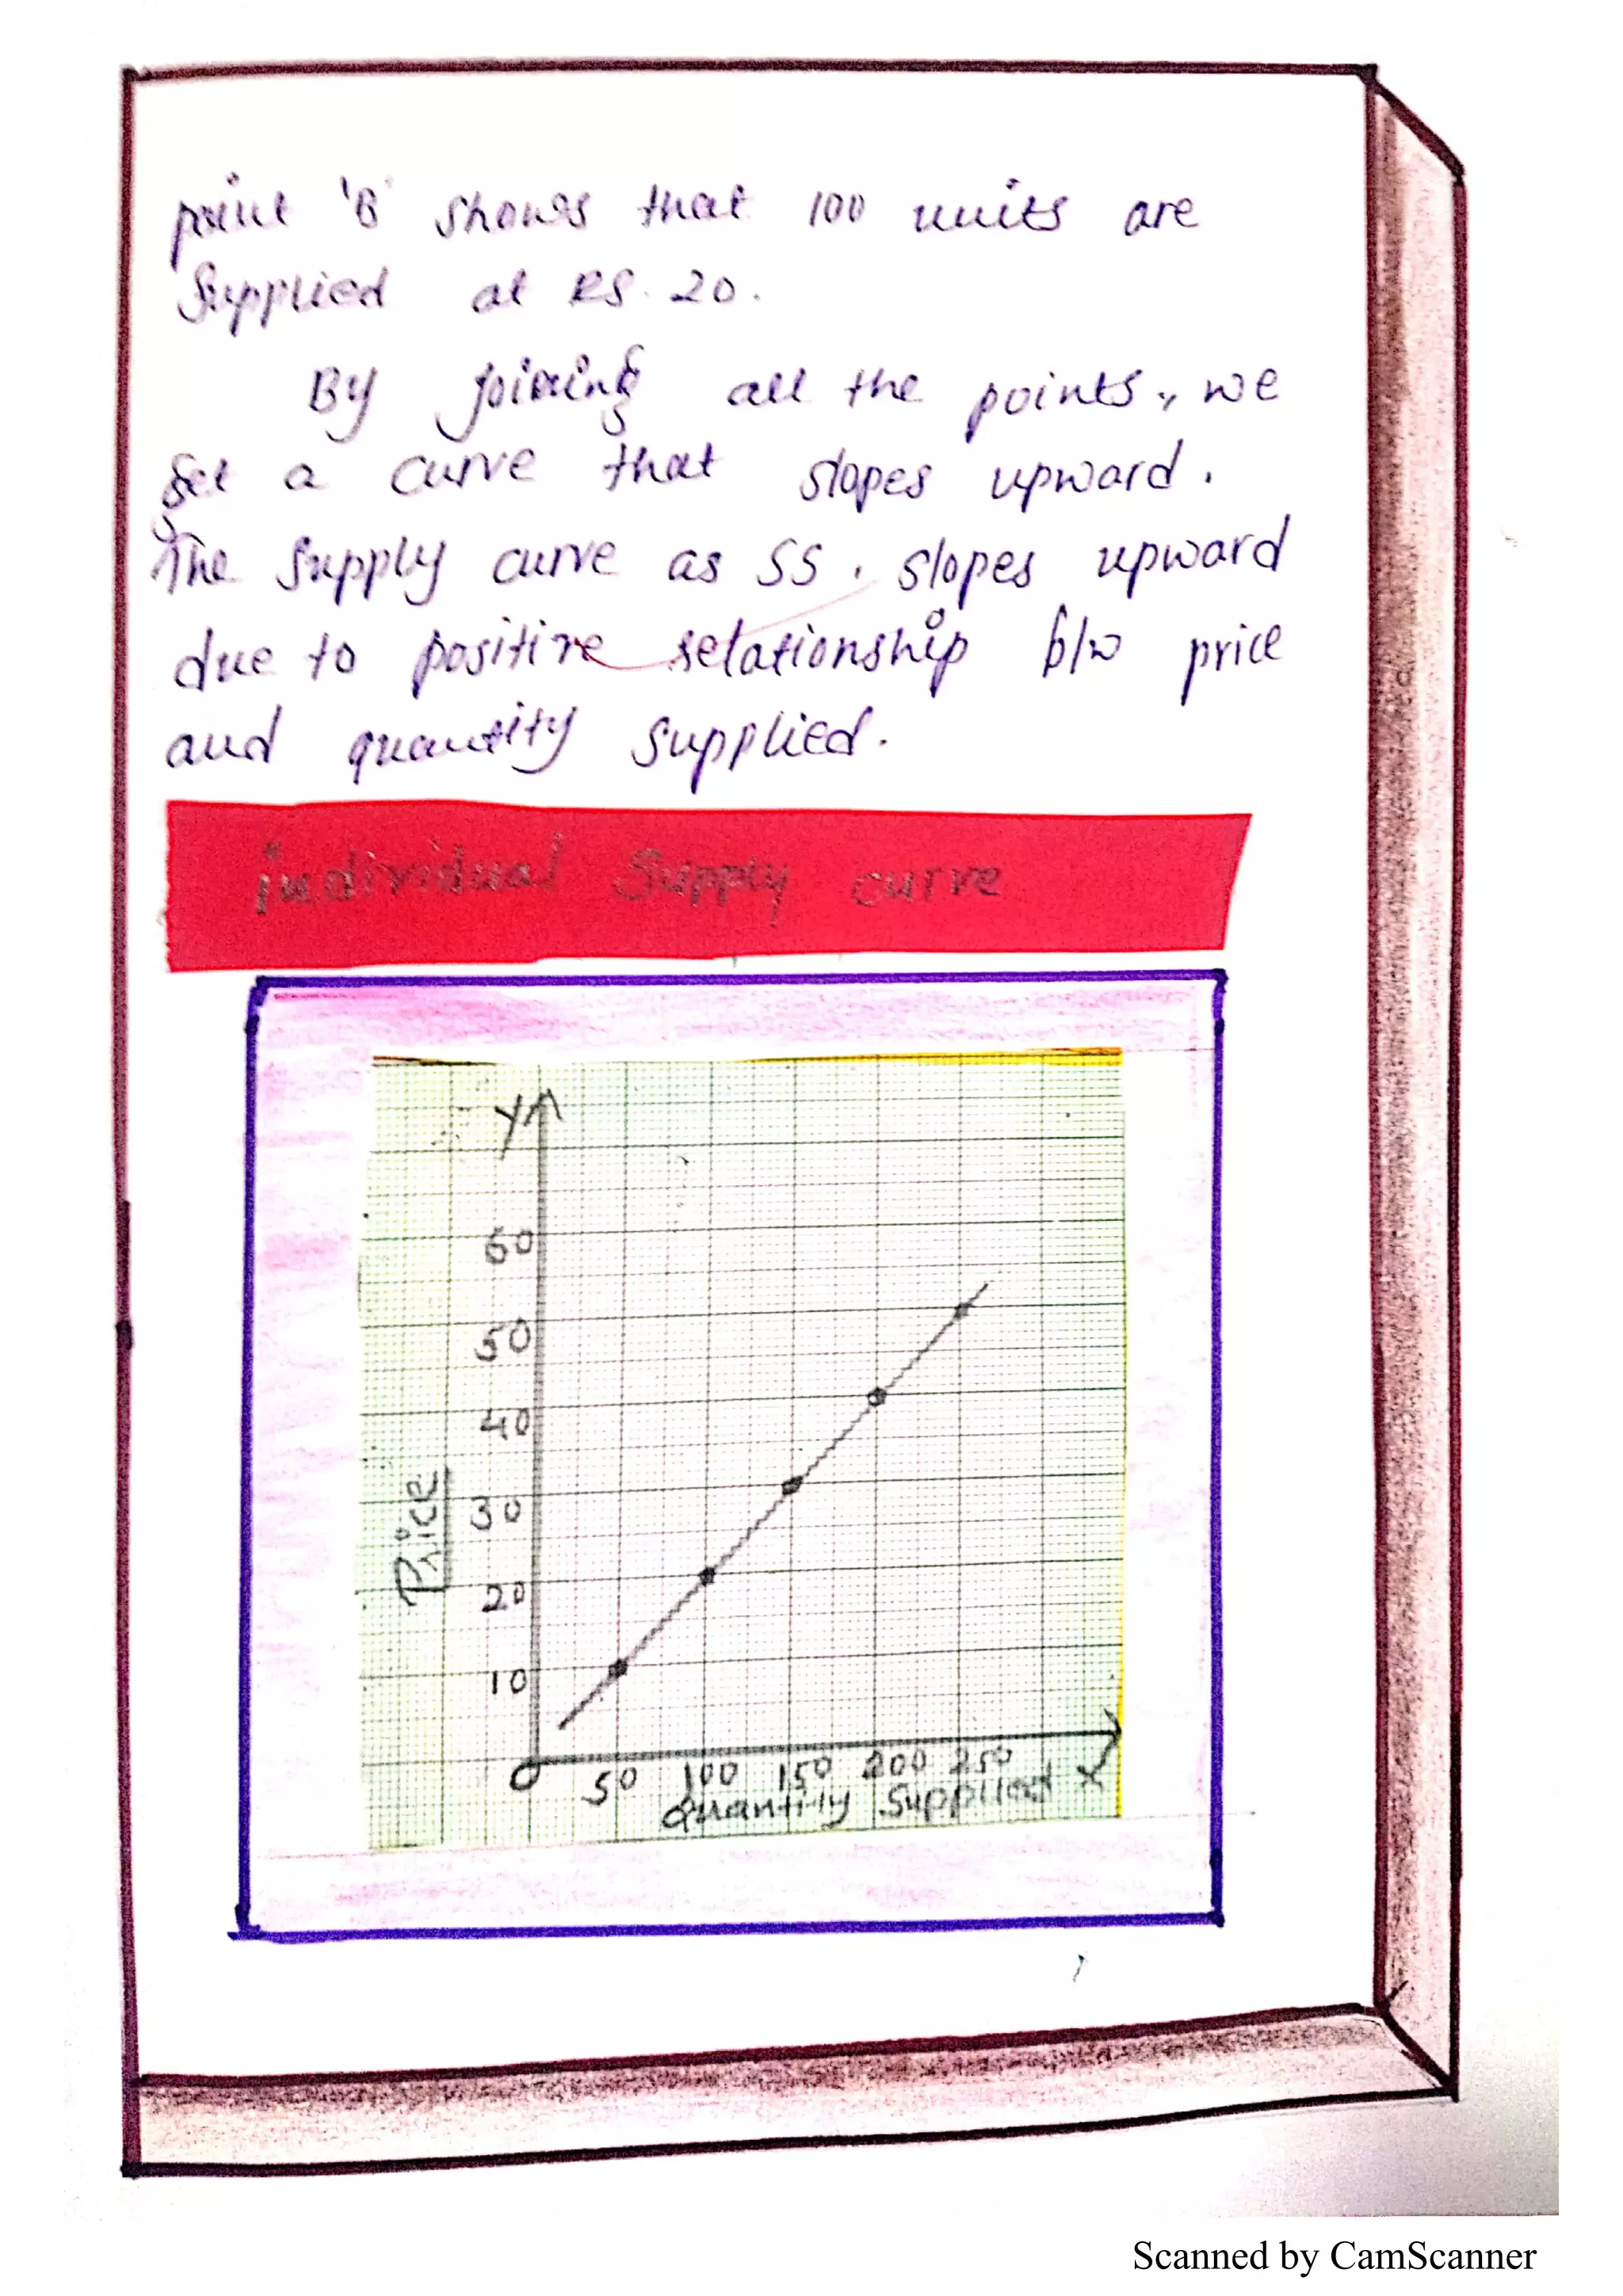 point 'B' shows that 100 units are
Supplied at RS. 20.
By joining all the points, we
get a curve that slopes upward.
The Supply curve as SS, slopes upward
due to positive relationship b/w price
and quantity supplied.
individual Supply curve
Y
60
50
40
30
20
10
Price
0 50 100 150 200 250 X
Quantity Supplied
Scanned by CamScanner